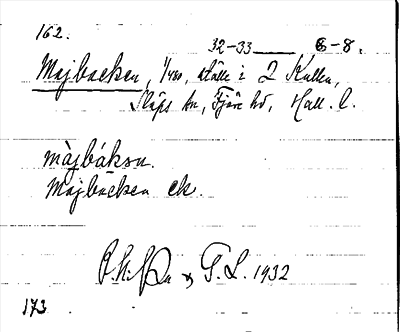 162.
32-33 6-8.
Majbacken, 1/480, ställe i 2 Kullen,
Släps sn, Fjäre hd, Hall. l.
màjbákən.
Majbacken ek.
F. L. 1932
173